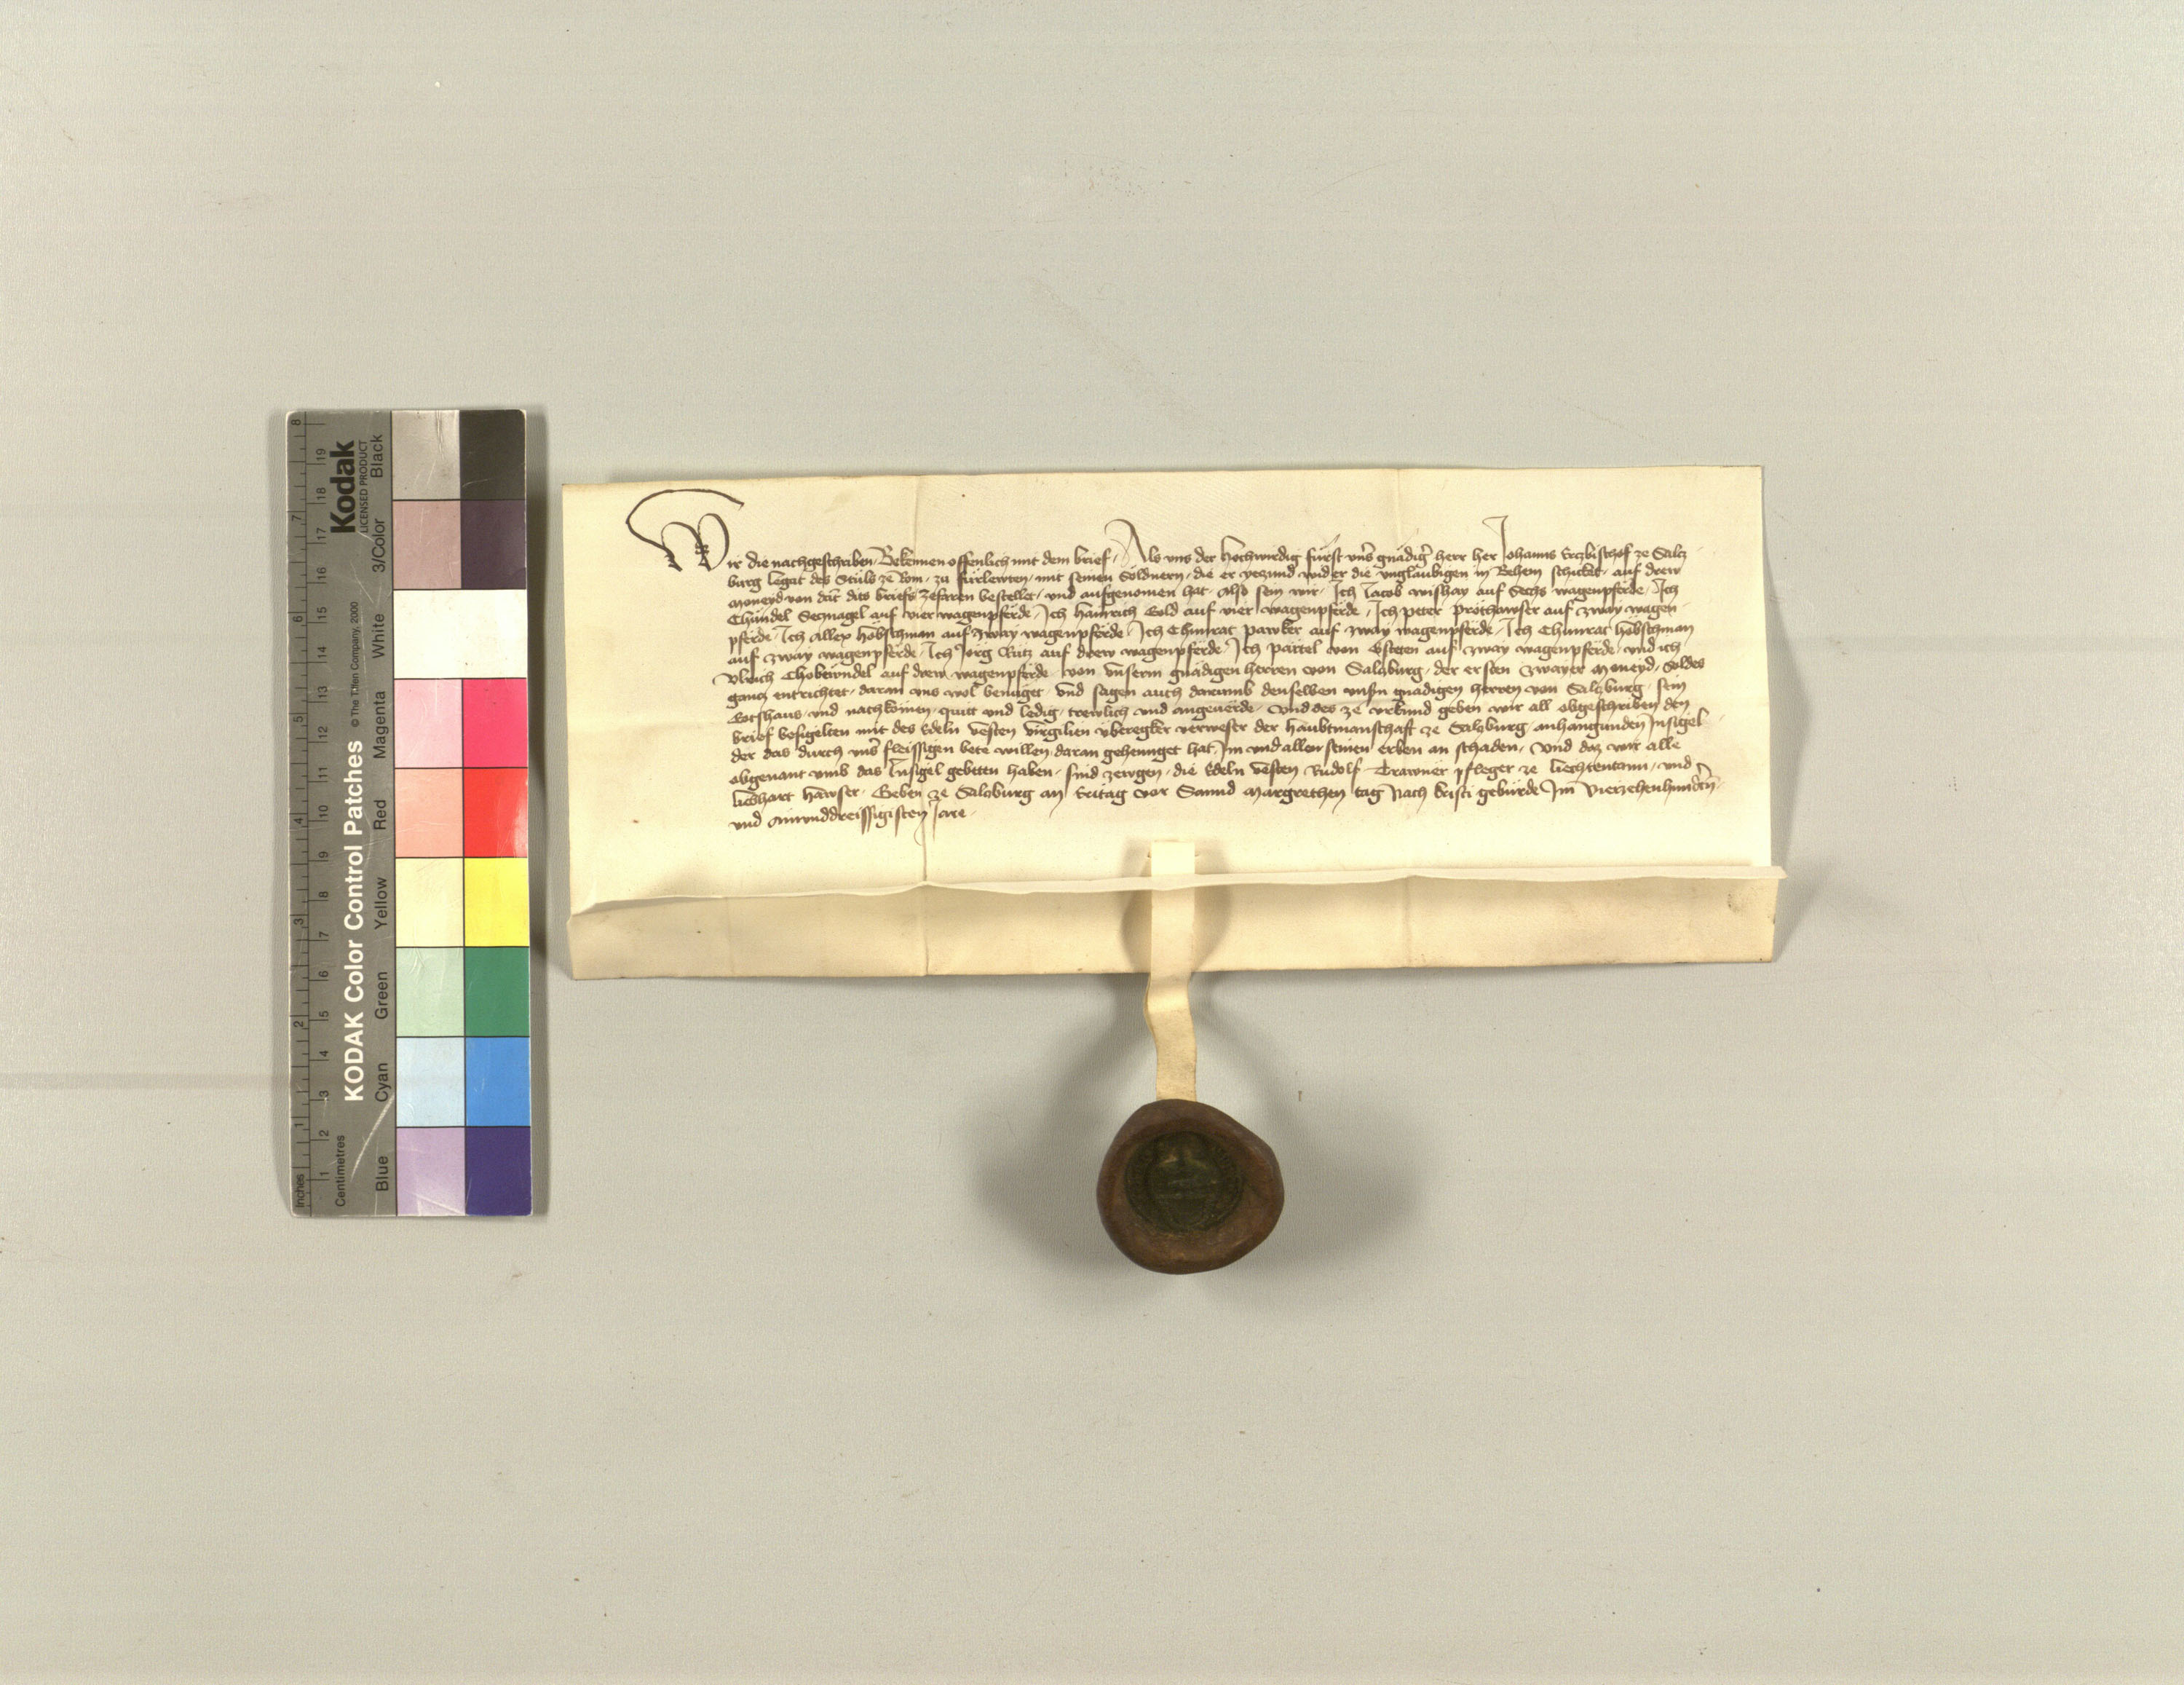 Wir die nachgeschriben Bekennen offenlich mit dem brief, Als uns der Hochwirdig fürst unser gnädiger herr her Johanns Erczbischof ze Salcz
burg Legat des Stůls ze Rom, zu fürlewten, mit seinen Soldnern, die er yezund wider die unglaubigen in Behem schicket, auf drew
moneyd von dat dits briefs ze faren bestellet, und aufgenomen hat, Also sein wir, Ich Jacob auf Sechs wagenpferde, Ich
Chündel Seznagel auf vier wagenpferde, Ich Hainrich Gold auf vier wagenpferde, Ich Peter Prothawser auf zway wagen
pferde, Ich Allex Hobschman auf zway wagenpferde, Ich Chunrat Pawker auf zway wagenpferde, Ich Chunrat Hobschman
auf zway wagenpferde, Ich Jorg auf drew wagenpferde, Ich Pärtel von auf zway wagenpferde, und ich
Ulrich auf drew wagenpferde, von unserm gnädigen herren von Salzburg, der ersten zwayer moneyd, Soldes
gancz entrichtet, daran uns wol benüget, und sagen auch darumb denselben unsern gnädigen herren von Salzburg, sein
Gotshaus, und nachkomen, quitt und ledig, trewlich und angeverde, Und des ze urkund geben wir all obgeschriben den
brief besigelten mit des Edeln Vesten Virgilien Uberegker verweser der haubtmanschaft ze Salzburg, anhangunden Insigel
der das durch unser fleissigen bete willen, daran gehennget hat, Im und allen seinen erben an schaden, Und daz wir alle
obgenant umb das Insigel gebeten haben, sind zewgen, die Edeln Vesten Rudolf Trawner pfleger ze Liechtentann, und
Liebhart Hawser, Geben ze Salzburg an Eritag vor Sannd Margrethen tag Nach kristi gebürde Im Vierzehenhundertn
und Ainunddreissigisten Jare
KODAK Color Control Patches
Kodak
LICENSED PRODUCT
© The Tiffen Company, 2000
Blue
Cyan
Green
Yellow
Red
Magenta
White
3/Color
Black
Inches
1
2
3
4
5
6
7
8
Centimetres
1
2
3
4
5
6
7
8
9
10
11
12
13
14
15
16
17
18
19